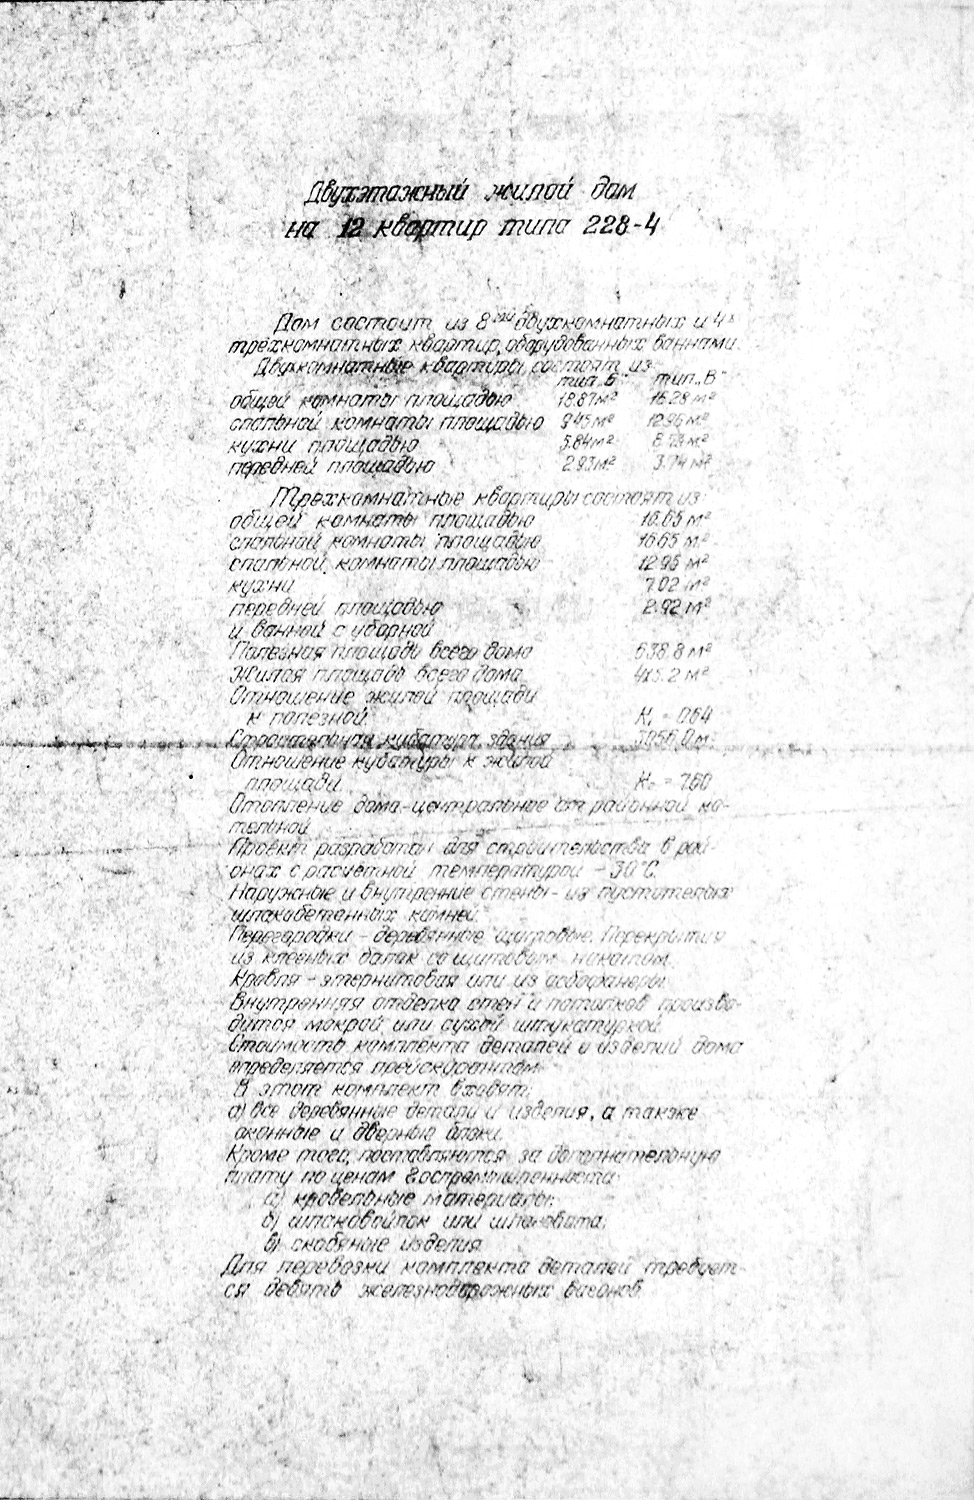 Двухэтажный жилой дом
на 12 квартир типа 228-4
Дом состоит из 8ми двухкомнатных и 4х
трехкомнатных квартир, оборудованных ваннами.
Двухкомнатные квартиры состоят из
тип „Б" тип „В"
общей комнаты площадью 18.87м² 16.28 м²
спальной комнаты площадью 9.45 м² 12.96 м²
кухни площадью 5.84 м² м²
передней площадью 2.93 м² 3.74 м²
Трехкомнатные квартиры состоят из:
общей комнаты площадью 16.65 м²
спальной комнаты площадью 16.65 м²
спальной комнаты площадью 12.96 м²
кухни 7.02 м²
передней площадью 2.92 м²
и ванной с уборной
Полезная площадь всего дома 638.8 м²
Жилая площадь всего дома м²
Отношение жилой площади
к полезной К₁ = 0.64
Строительная кубатура здания
Отношение кубатуры к жилой
площади К₂ = 7.60
Отопление дома - центральное от районной ко-
тельной
Проект разработан для строительства в рай-
онах с расчетной температурой - 30°С.
Наружные и внутренние стены - из пустотелых
шлакобетонных камней.
Перегородки - деревянные щитовые. Перекрытия
из клееных балок со щитовым накатом
Кровля - этернитовая или из асбофанеры
Внутренняя отделка стен и потолков произво-
дится мокрой или сухой штукатуркой
Стоимость комплекта деталей и изделий дома
определяется прейскурантом
В этот комплект входят:
а) все деревянные детали и изделия, а также
оконные и дверные блоки.
Кроме того, поставляются за дополнительную
плату по ценам Госпромышленности:
а) кровельные материалы;
б) шлаковойлок или шлаковата;
в) скобяные изделия
Для перевозки комплекта деталей требует-
ся девять железнодорожных вагонов